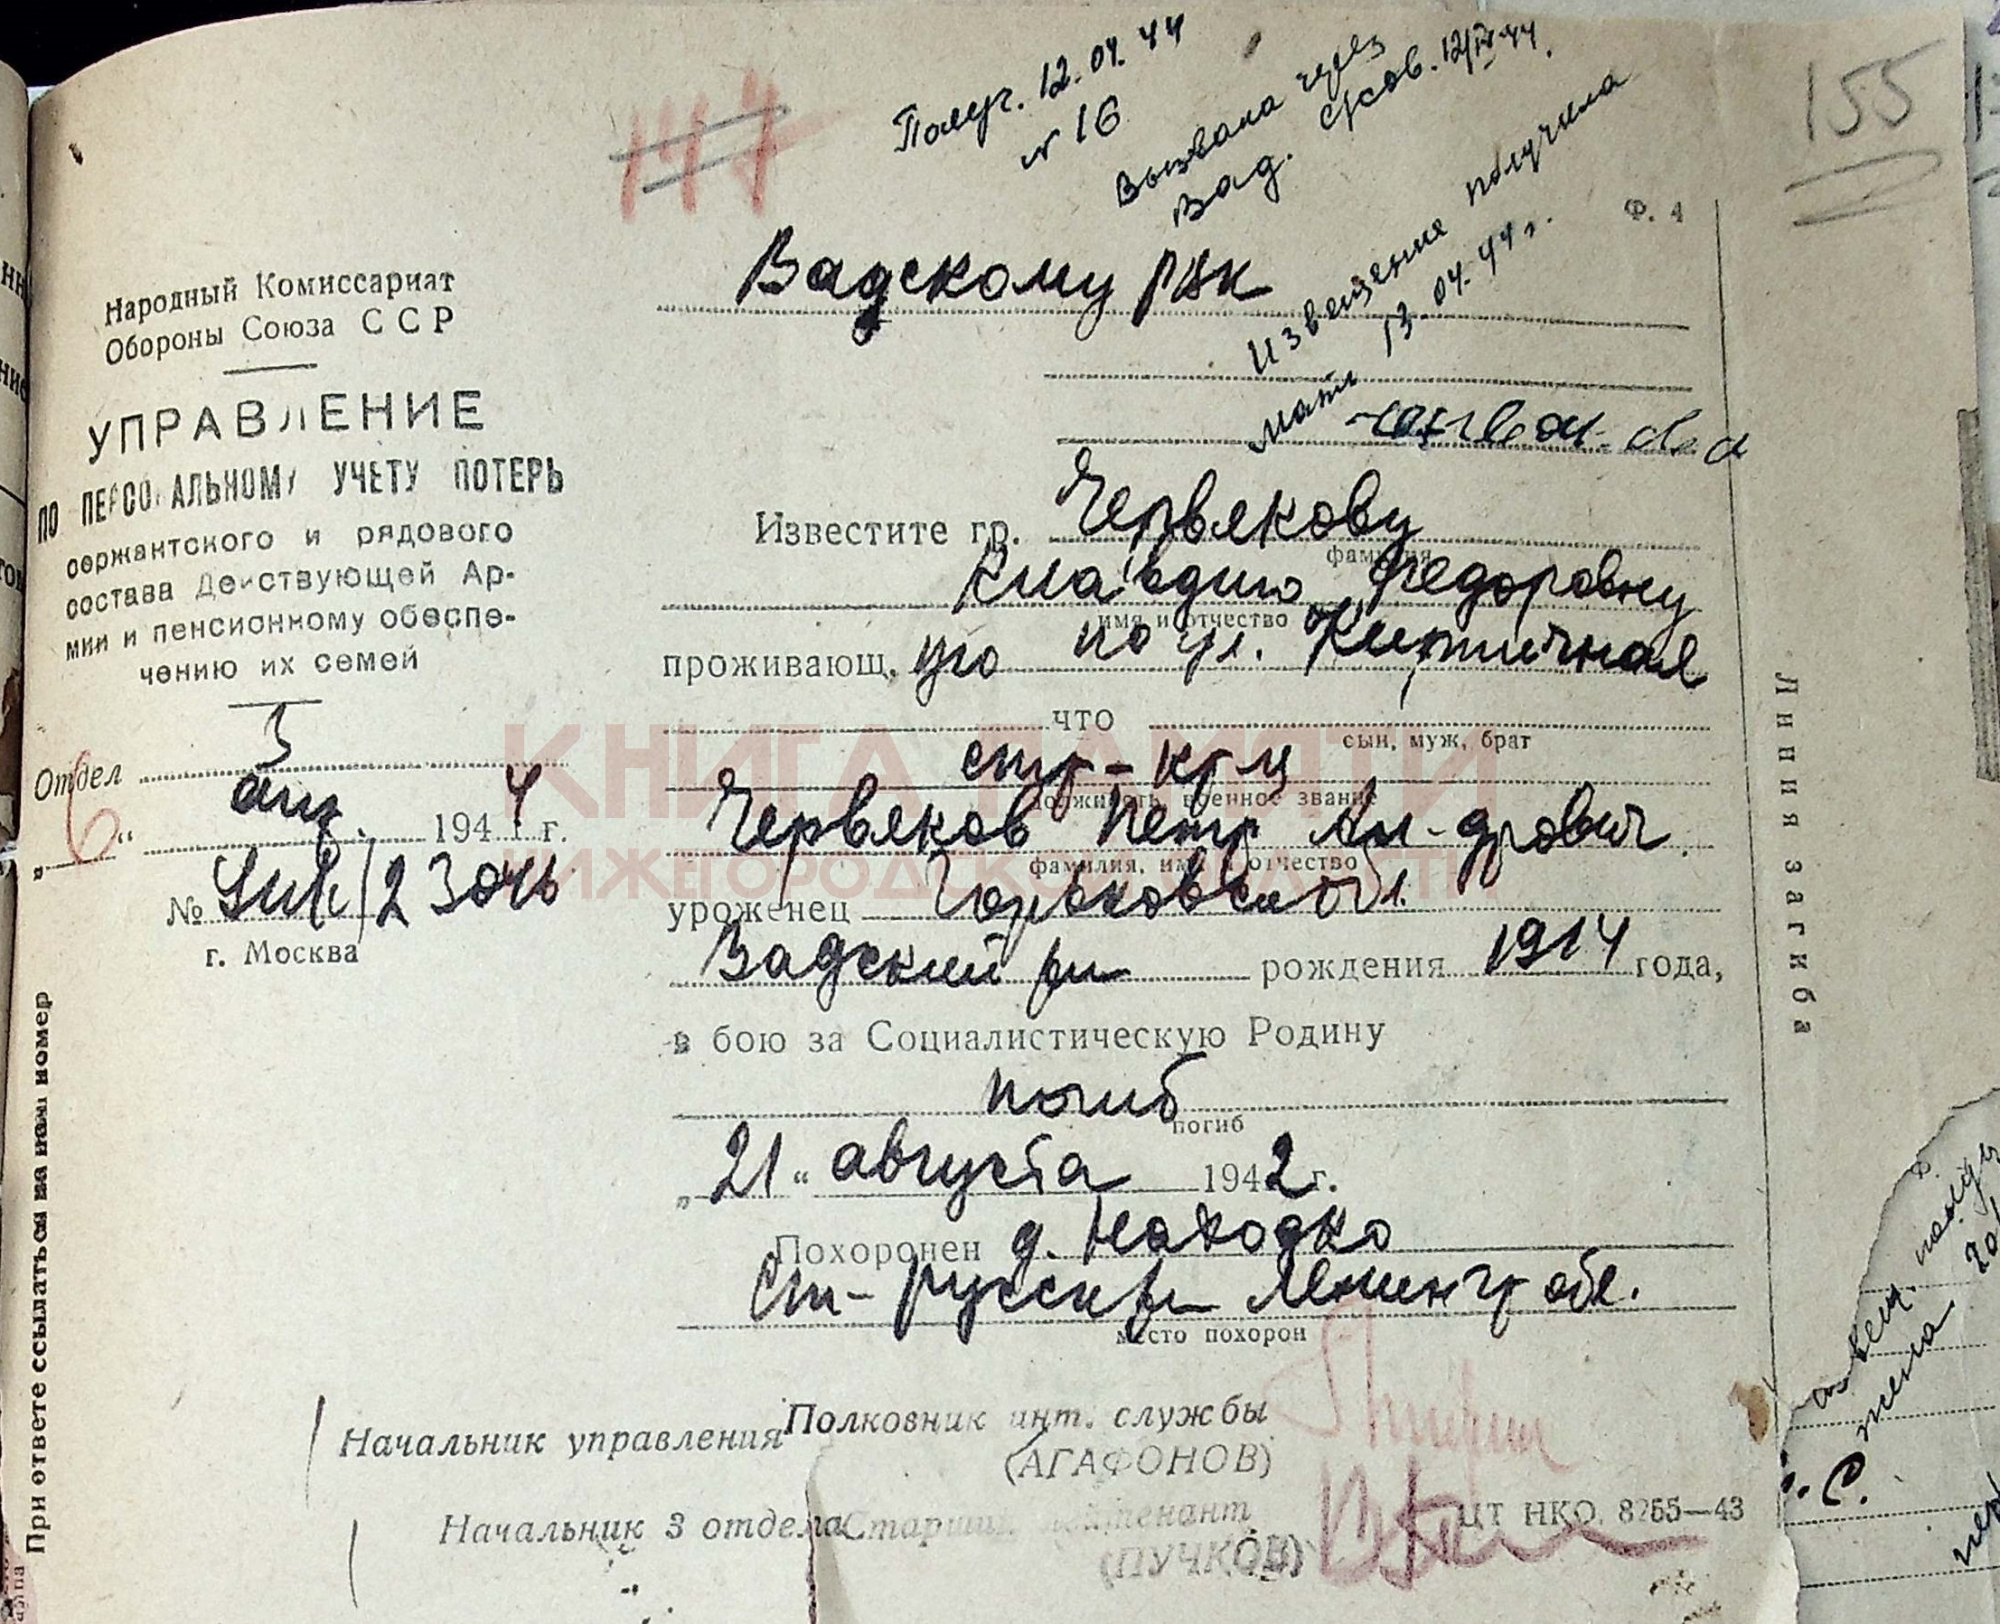 155
147
Получ. 12.04.44
№ 16
Вызвана через
Вад. с/сов. 12/IV-44.
Извещение получила
мать 13.04.44 г.
Ф. 4
Народный Комиссариат
Обороны Союза ССР
УПРАВЛЕНИЕ
ПО ПЕРСОНАЛЬНОМУ УЧЕТУ ПОТЕРЬ
сержантского и рядового
состава Действующей Ар-
мии и пенсионному обеспе-
чению их семей
Отдел 3
„6“ апр. 1944 г.
№ 2 3046
г. Москва
При ответе ссылаться на наш номер
Вадскому РВК
Известите гр. Червякову
фамилия
Клавдию Федоровну
имя и отчество
проживающ. ую по ул. Кирпичная
что
сын, муж, брат
стр-кр-ц
должность, военное звание
Червяков Петр Ал-дрович
фамилия, имя и отчество
уроженец Горьковской обл.
Вадский рн рождения 1914 года,
в бою за Социалистическую Родину
погиб
погиб
„21“ августа 1942 г.
Похоронен д. Находко
Ст-русский рн Ленингр обл.
место похорон
Начальник управления Полковник инт. службы
(АГАФОНОВ)
Начальник 3 отдела Старший лейтенант
(ПУЧКОВ)
ЦТ НКО. 8255—43
Линия загиба
КНИГА ПАМЯТИ
НИЖЕГОРОДСКОЙ ОБЛАСТИ
жена